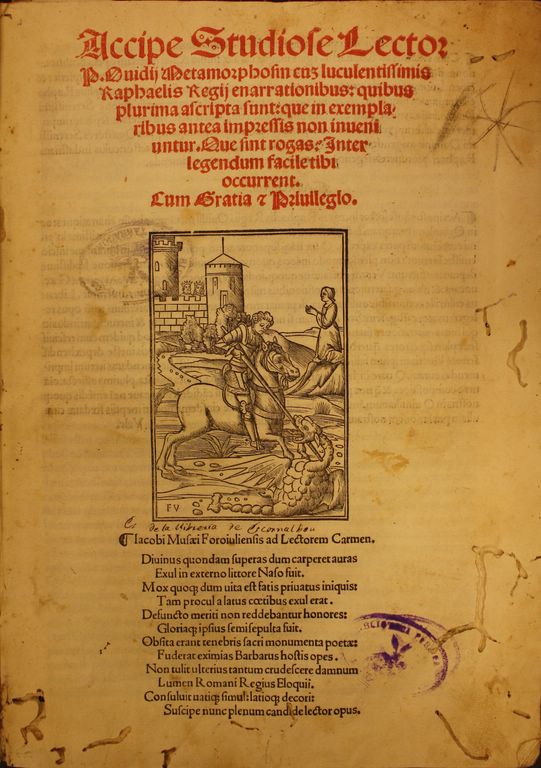 Accipe Studiose Lector
P. Ouidij Metamorphosin cuz luculentissimis
Raphaelis Regij enarrationibus: quibus
plurima ascripta sunt: que in exempla⸗
ribus antea impressis non inueni
untur. Que sint rogas: Inter
legendum facile tibi
occurrent.
Cum Gratia ⁊ Priuilegio.
FV
Es de la libreria de Escornalbou
¶Iacobi Musæi Foroiuliensis ad Lectorem Carmen.
Diuinus quondam superas dum carperet auras
Exul in externo littore Naso fuit.
Mox quoq; dum uita est fatis priuatus iniquis:
Tam procul a latus cœtibus exul erat.
Defuncto meriti non reddebantur honores:
Gloriaq; ipsius semisepulta fuit.
Obsita erant tenebris sacri monumenta poetæ:
Fuderat eximias Barbarus hostis opes.
Non tulit ulterius tantum crudescere damnum
Lumen Romani Regius Eloquii.
Consuluit uatiq; simul: latioq; decori:
Suscipe nunc plenum candide lector opus.
BIBLIOTECA